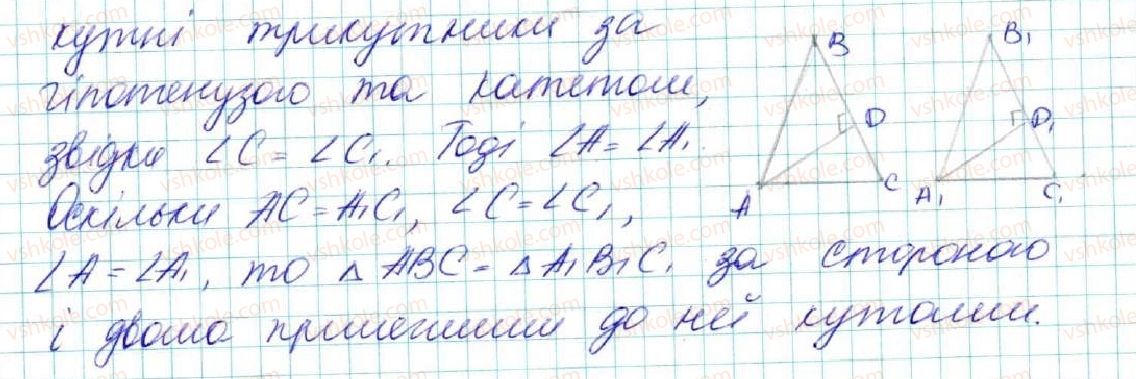 кутні трикутники за
гіпотенузою та катетом,
звідки ∠C = ∠C₁. Тоді ∠A = ∠A₁.
Оскільки AC = A₁C₁, ∠C = ∠C₁,
∠A = ∠A₁, то △ABC = △A₁B₁C₁ за стороною
і двома прилеглими до неї кутами.
B B₁
D D₁
A C A₁ C₁
vshkole.com